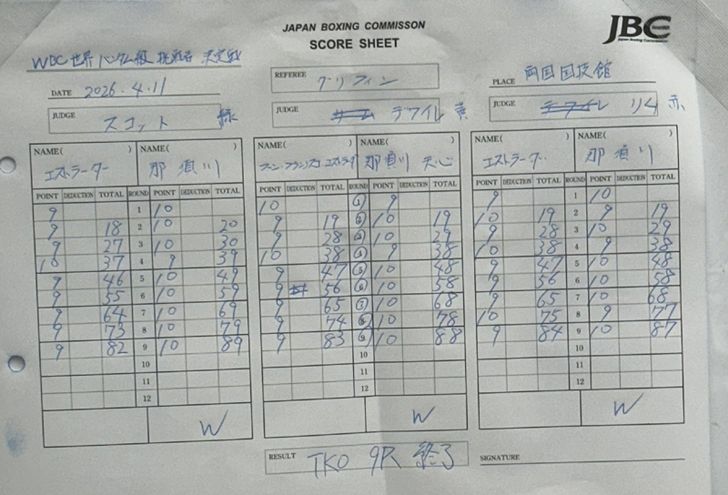 JAPAN BOXING COMMISSON
SCORE SHEET
JBC
Japan Boxing Commission
WBC世界バンタム級 挑戦者 決定戦
DATE 2026.4.11
REFEREE グリフィン
PLACE 両国国技館
JUDGE スコット 緑
JUDGE デワイル 黄
JUDGE デワイル リム 赤
NAME( ) NAME( ) NAME( ) NAME( ) NAME( ) NAME( )
エストラーダ 那須川 ファン・フランシスコ エストラーダ 那須川 天心 エストラーダ 那須川
POINT DEDUCTION TOTAL ROUND POINT DEDUCTION TOTAL POINT DEDUCTION TOTAL ROUND POINT DEDUCTION TOTAL POINT DEDUCTION TOTAL ROUND POINT DEDUCTION TOTAL
9 1 10 10 1 9 9 1 10
9 18 2 10 20 9 19 2 10 19 10 19 2 9 19
9 27 3 10 30 9 28 3 10 29 9 28 3 10 29
10 37 4 9 39 10 38 4 9 38 10 38 4 9 38
9 46 5 10 49 9 47 5 10 48 9 47 5 10 48
9 55 6 10 59 9 56 6 10 58 9 56 6 10 58
9 64 7 10 69 9 65 7 10 68 9 65 7 10 68
9 73 8 10 79 9 74 8 10 78 10 75 8 9 77
9 82 9 10 89 9 83 9 10 88 9 84 9 10 87
10 10 10
11 11 11
12 12 12
W W W
RESULT TKO 9R 終了
SIGNATURE